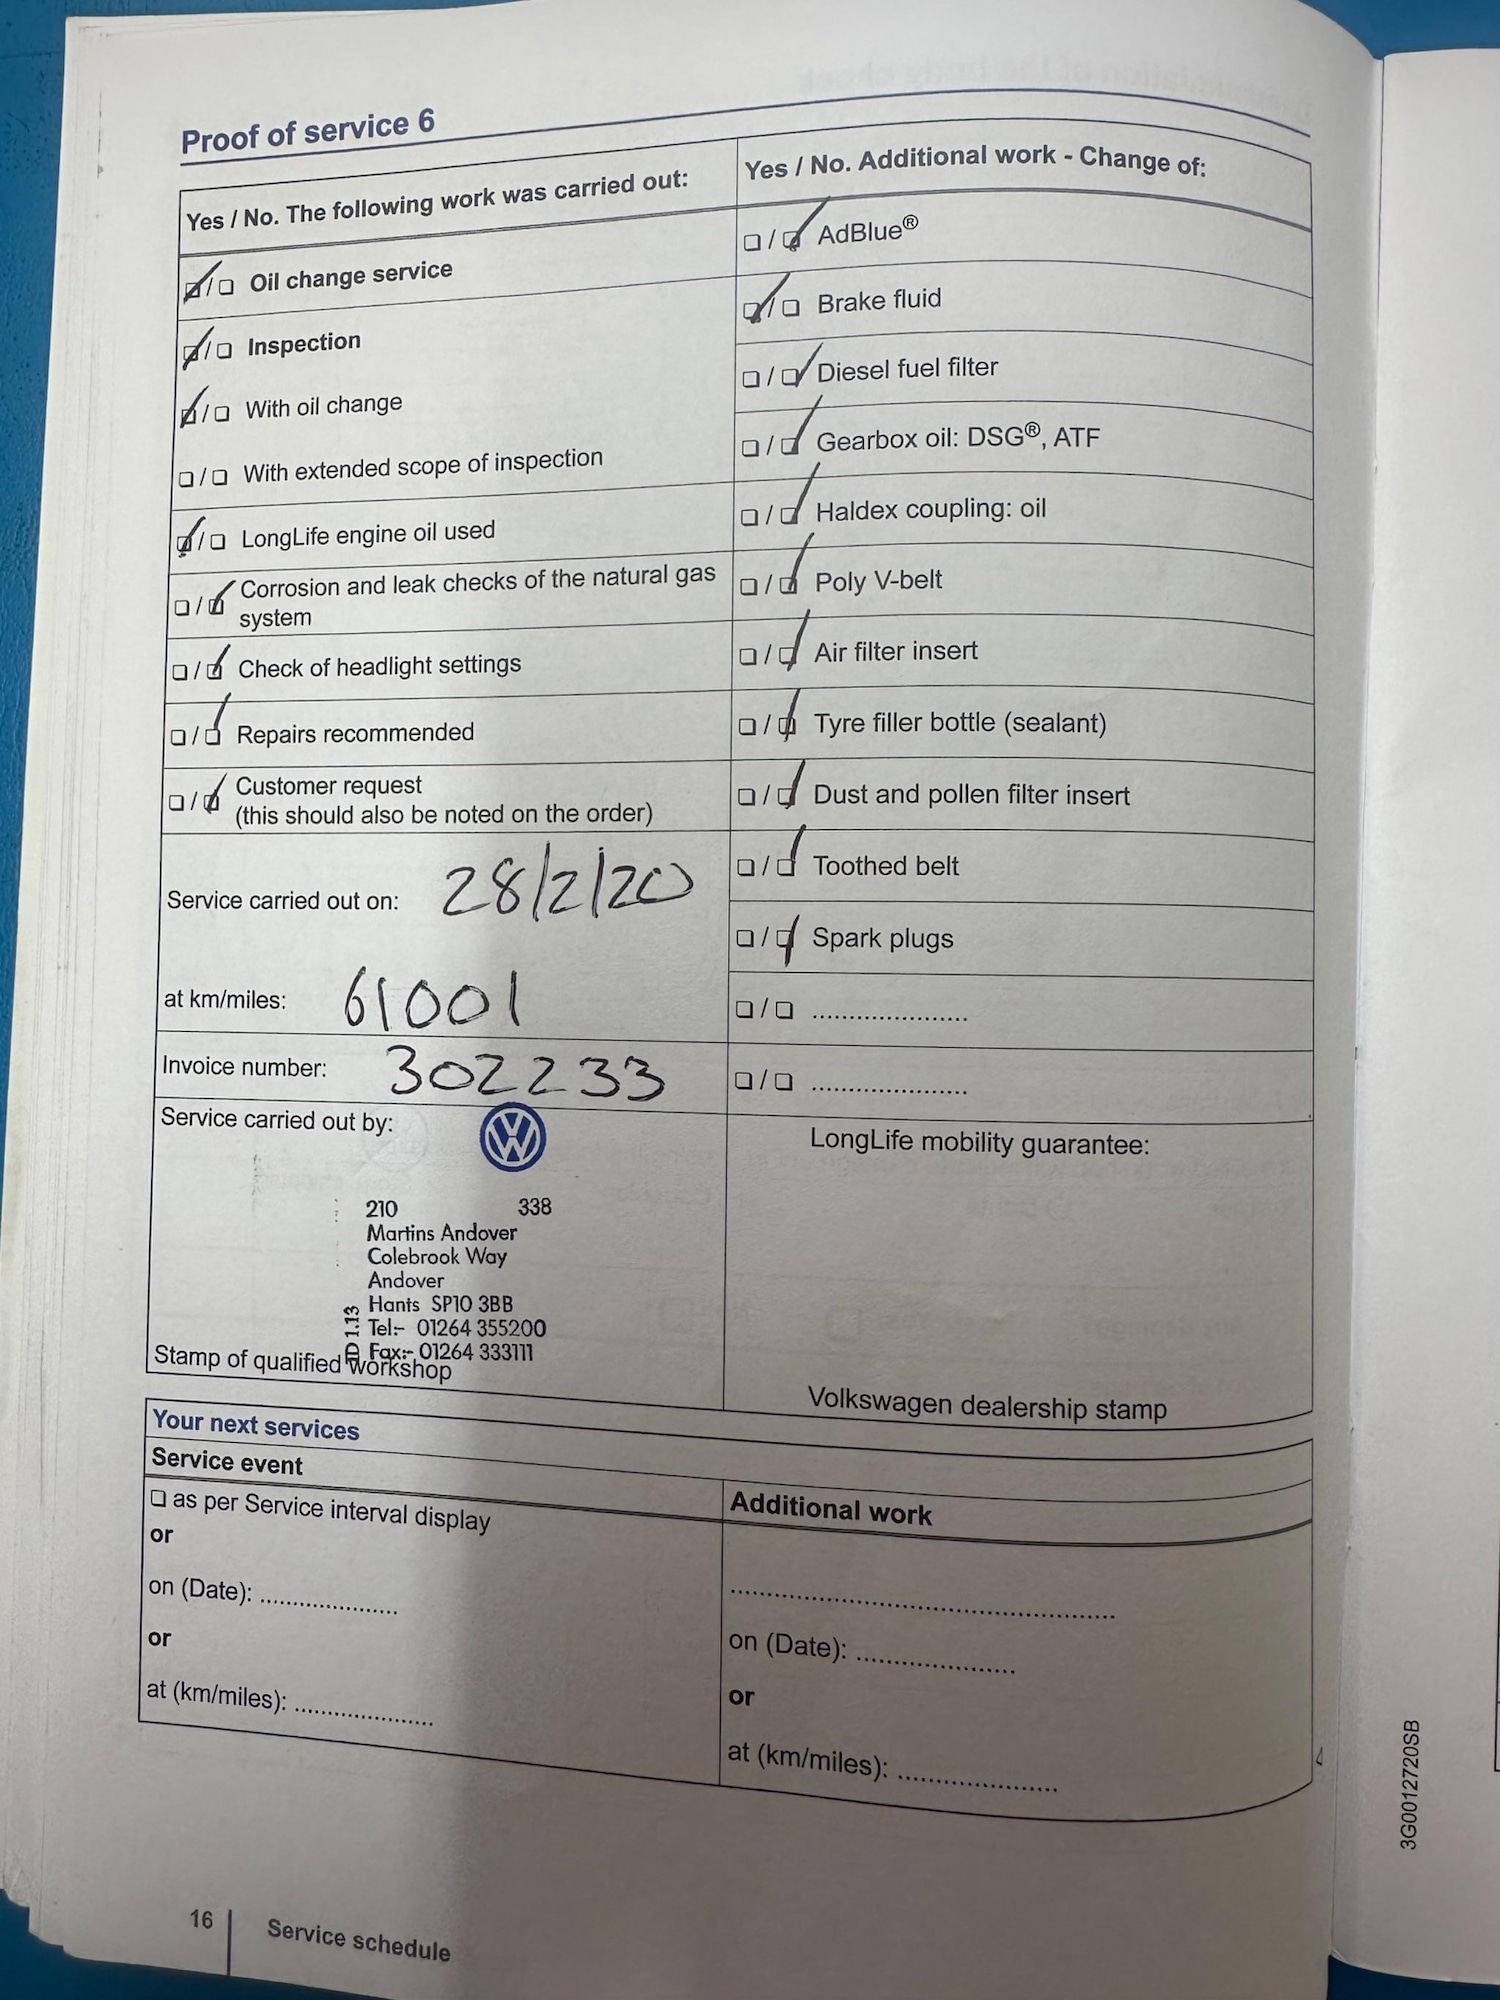 Proof of service 6
Yes / No. The following work was carried out:
☑/❏ Oil change service
☑/❏ Inspection
☑/❏ With oil change
❏/❏ With extended scope of inspection
☑/❏ LongLife engine oil used
❏/☑ Corrosion and leak checks of the natural gas
system
❏/☑ Check of headlight settings
❏/☑ Repairs recommended
❏/☑ Customer request
(this should also be noted on the order)
Service carried out on: 28/2/20
at km/miles: 61001
Invoice number: 302233
Service carried out by:
210 338
Martins Andover
Colebrook Way
Andover
Hants SP10 3BB
Tel:- 01264 355200
Fax:- 01264 333111
D 1.13
Stamp of qualified workshop
Yes / No. Additional work - Change of:
❏/☑ AdBlue®
☑/❏ Brake fluid
❏/☑ Diesel fuel filter
❏/☑ Gearbox oil: DSG®, ATF
❏/☑ Haldex coupling: oil
❏/☑ Poly V-belt
❏/☑ Air filter insert
❏/☑ Tyre filler bottle (sealant)
❏/☑ Dust and pollen filter insert
❏/☑ Toothed belt
❏/☑ Spark plugs
❏/❏ ......................
❏/❏ ......................
LongLife mobility guarantee:
Volkswagen dealership stamp
Your next services
Service event
❏ as per Service interval display
or
on (Date): ....................
or
at (km/miles): ....................
Additional work
.......................................................
on (Date): .......................
or
at (km/miles): .......................
3G0012720SB
16 Service schedule